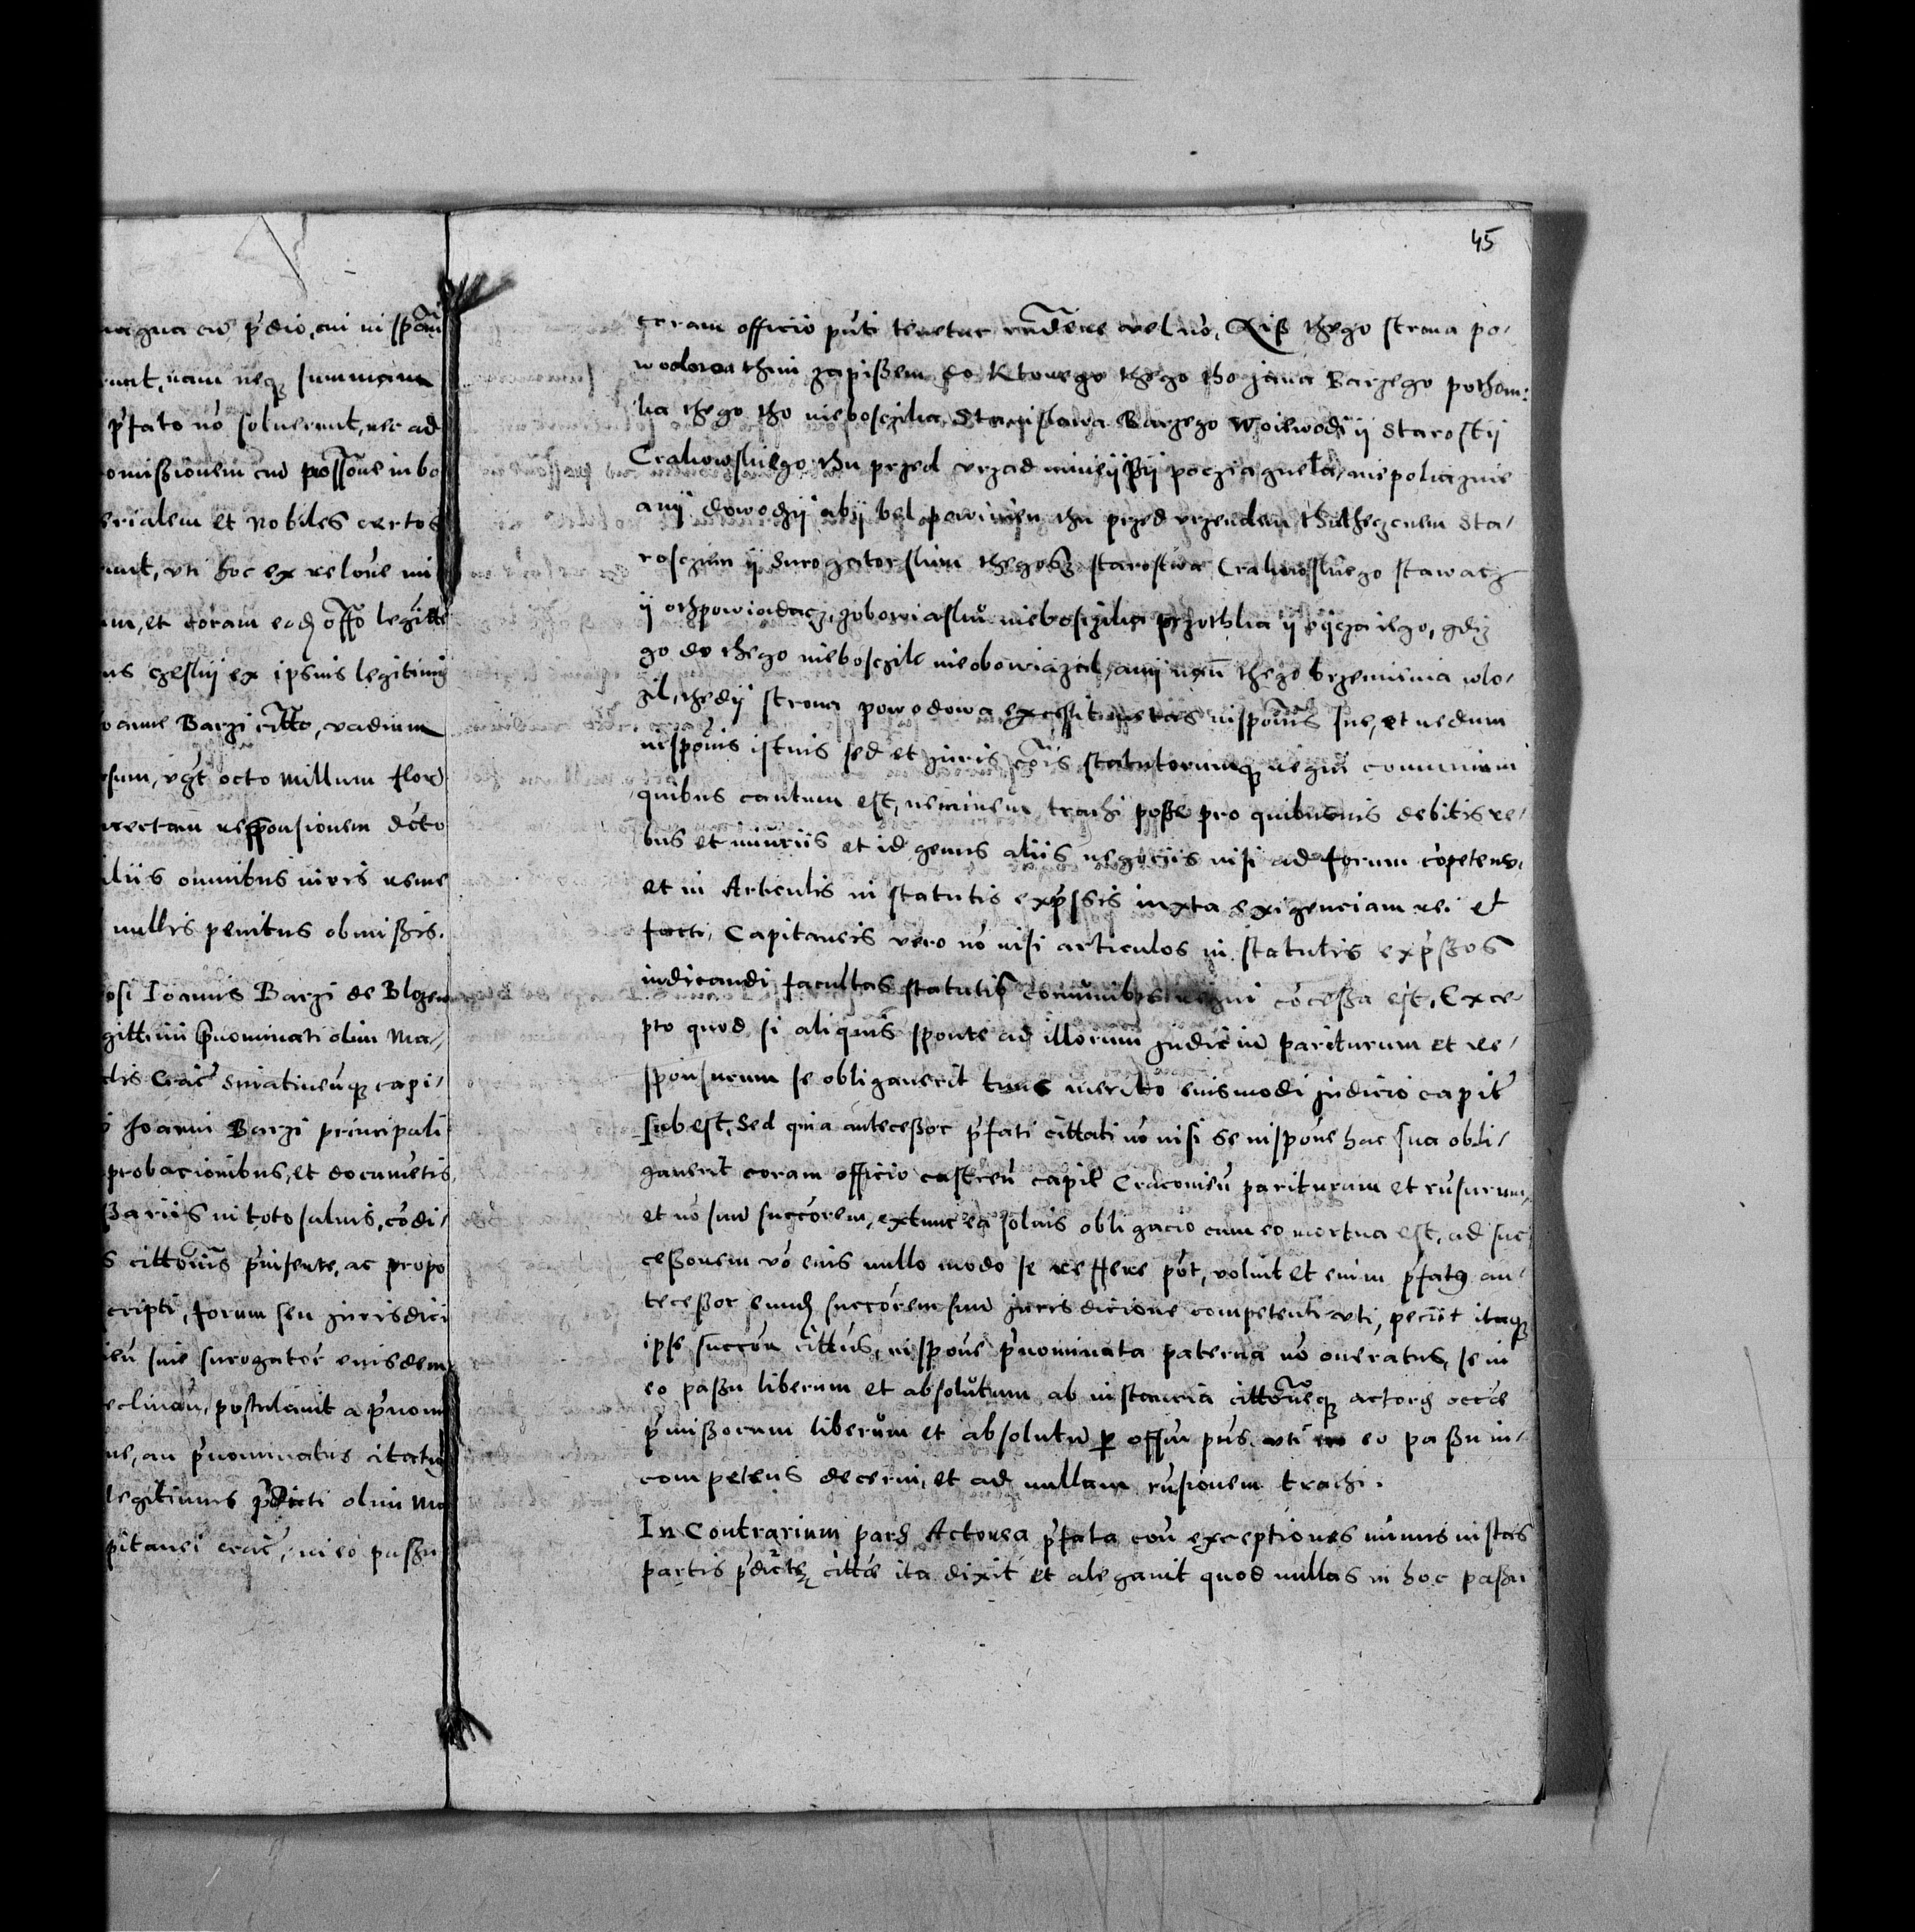 45
magna cū p̄dio, cui in
nunt, nam neqȝ summam
p̄fato nō soluerunt, nec ad
omißionem cū possōne in bo
erialem et nobiles certos
unt, vti hoc ex relōne mi
um, et coram eodȝ offō legitte
ex ipsius legitimi
oanne Barzi citto, vadium
sum, vgt octo millium flor
rectam responsionem dcto
iliis omnibus iuris reme
nullis penitus obmißis.
osi Ioannis Barzi de Blozew
gittimi p̄nominati olim Ma/
Crac̄ capi/
Joanni Barzi principali
probacionibus, et documētis
in toto saluis, cōdi/
s cittōnis p̄insente, ac propo
cripti, forum seu jurisdici
siue surogatoris eiusdem
eclinan̄, postulauit a p̄nom
ne, an p̄nominatus citatus
legitimus p̄dicti olim Ma
pitanei crac̄, in eo paßu
coram officio pn̄ti tenetur rn̄dere vel nō, Aiß thego strona po/
wodowa thim zapißem do ktorego thego tho jana Barzego pothom:
ka thego tho nieboszczika Stanislawa Barzego Woiewodij ij Starostij
Crakowskiego thu przed vrzad pocziagnela, niepokaznie
anij dowodzij abij bel powinien thu przed vrzendem thutheczenem sta/
rosczim ij Surogatorskim thegosz starostwa Crakowskiego stawacz
ij othpowiadacz, zobowiaskū nieboszczika przothka ij oijcza iego, gdiz
go do thego nieboszczik nieobowiazal, anij nan̄ thego brzemienia wlo/
zil, thedij strona powodowa excessit metas inspōnis sue, et nedum
inspōnis istius sed et juris cōis statutorumqȝ regni communium
quibus cautum est, neminem trachi poße pro quibusuis debitis re/
bus et iniuriis et id genus aliis negociis nisi ad forum cōpetens,
et in Articulis in statutis exp̄ssis iuxta exigenciam rei et
facti, Capitaneis vero nō nisi articulos in statutis exp̄ßos
iudicandi facultas statutis comūnibus regni cōceßa est, Exce
pto quod si aliquis sponte ad illorum judiciū pariturum et re/
sponsurum se obligauerit tunc merito eiusmodi judicio capit̄
subest, Sed quia anteceßor p̄fati cittati nō nisi se inspōne hac sua obli/
gauerit coram officio castren̄ capit̄ Cracouien̄ pariturum et rn̄surum,
et nō suū succōrem, extunc ea solius obligacio cum eo mortua est, ad suc
ceßorem vō eius nullo modo se referre pōt, voluit et enim p̄fatꝰ an/
teceßor eundȝ succōrem suū jurisdicione competenti vti, pecīit itaqȝ
ipse succor cittus, inspōne p̄nominata paterna nō oneratus, se in
eo paßu liberum et absolutum ab instancia cittōneqȝ actoris occē
p̄mißorum liberum et absolutū ꝑ offm̄ pn̄s vti in eo paßu in/
competens decerni, et ad nullam rn̄sionem trachi.
In Contrarium pars Actorea p̄fata con̄ exceptiones nimis instas
partis p̄dictę cittē ita dixit et alegauit quod nullas in hoc paßu